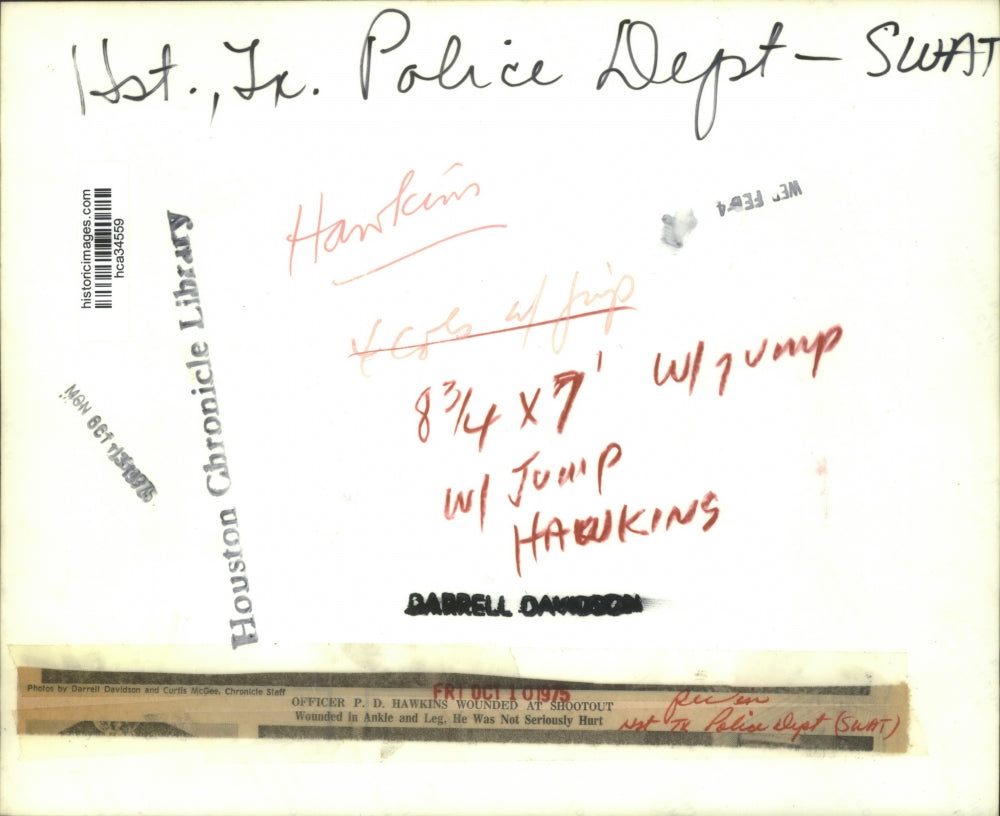 Hst., Tx. Police Dept - SWAT
historicimages.com
hca34559
Houston Chronicle Library
Hawkins
WED FEB 4
4 cols w/ jump
8 3/4 x 7' w/ jump
w/ Jump
HAWKINS
MON OCT 13 1975
DARRELL DAVIDSON
Photos by Darrell Davidson and Curtis McGee, Chronicle Staff
FRI OCT 10 1975
OFFICER P. D. HAWKINS WOUNDED AT SHOOTOUT
Wounded in Ankle and Leg, He Was Not Seriously Hurt
Hst Tx Police Dept (SWAT)